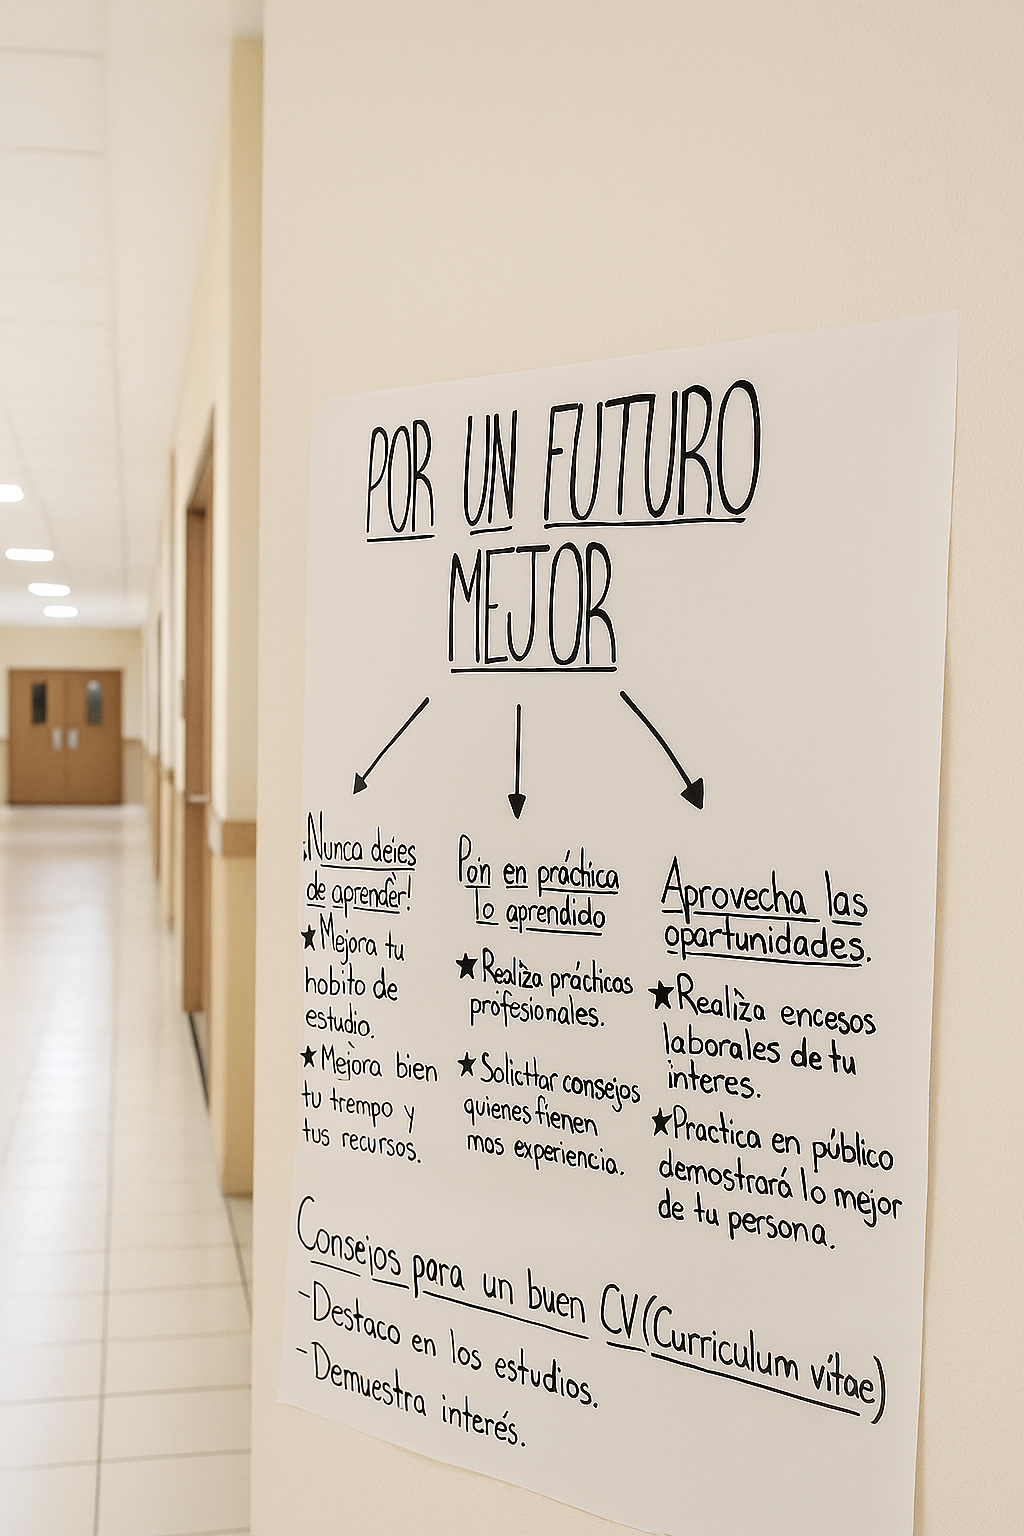 POR UN FUTURO
MEJOR
¡Nunca deies
de aprender!
★Mejora tu
hobito de
estudio.
★Mejora bien
tu trempo y
tus recursos.
Pon en práctica
lo aprendido
★Realiza prácticos
profesionales.
★Solicttar consejos
quienes fienen
mos experiencia.
Aprovecha las
oportunidades.
★Realiza encesos
laborales de tu
interes.
★Practica en público
demostrará lo mejor
de tu persona.
Consejos para un buen CV(Curriculum vítae)
-Destaco en los estudios.
-Demuestra interés.